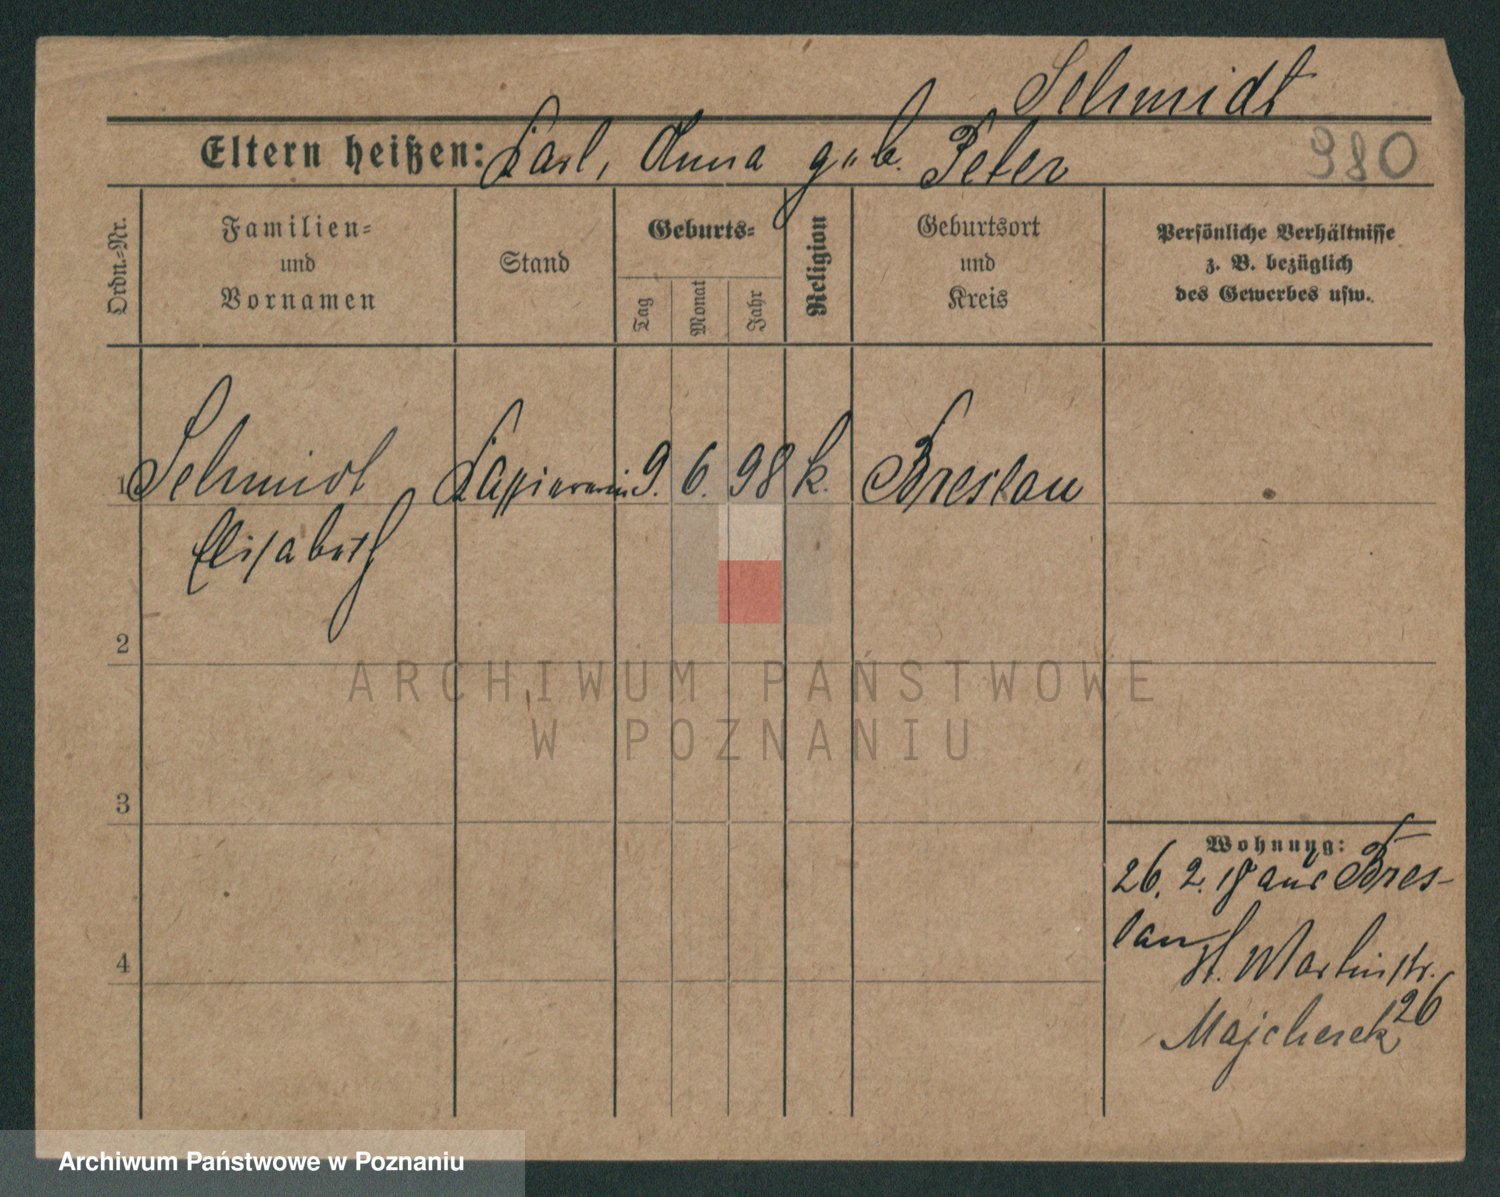 Schmidt
Eltern heißen: Karl, Anna geb. Peter
980
Ordn.-Nr.
Familien-
und
Vornamen
Stand
Geburts-
Tag
Monat
Jahr
Religion
Geburtsort
und
Kreis
Persönliche Verhältnisse
z. B. bezüglich
des Gewerbes usw.
1 Schmidt Kassiererin 9. 6. 98 k. Breslau
Elisabeth
2
3
4
ARCHIWUM PAŃSTWOWE
W POZNANIU
Wohnung:
26. 2. 18 aus Bres-
lau
St. Martinstr.
26
Majcherek
Archiwum Państwowe w Poznaniu